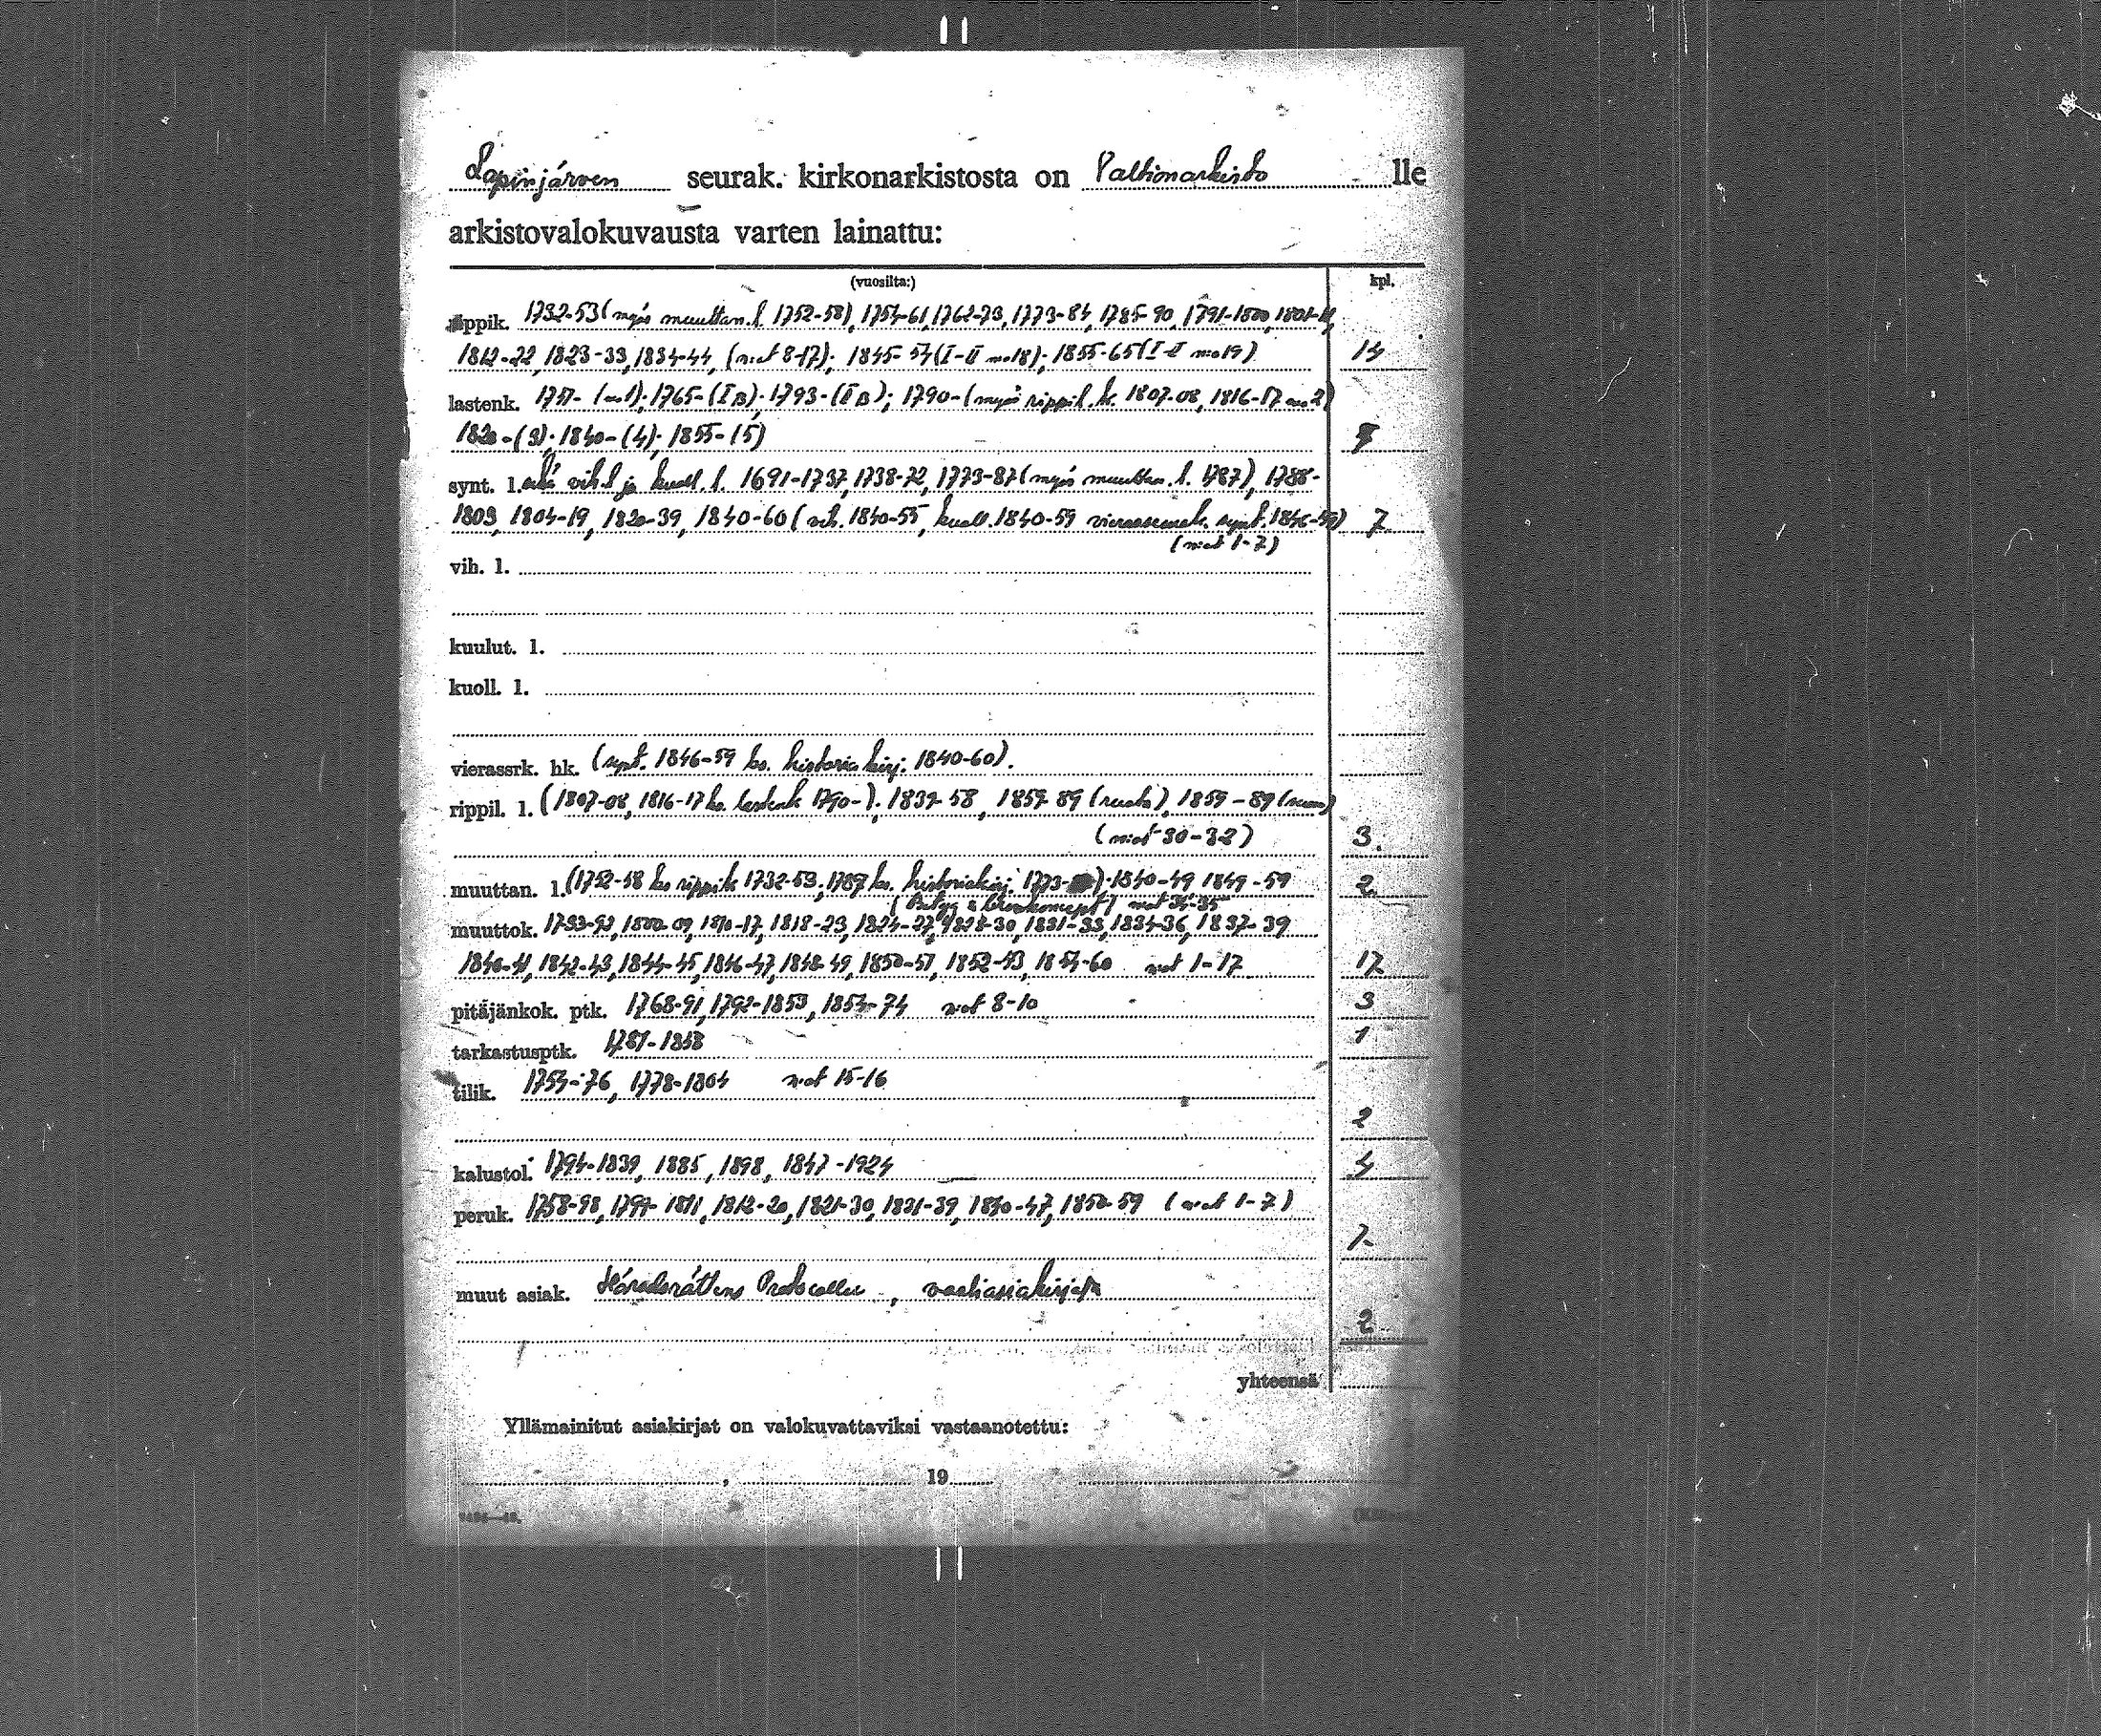 Lapinjärven seurak. kirkonarkistosta on Valtionarkisto lle
arkistovalokuvausta varten lainattu:
(vuosilta:) kpl.
rippik. 1732-53 (myös muuttan. l. 1752-58), 1754-61, 1762-73, 1773-84, 1785-90, 1791-1800, 1801-11,
1812-22, 1823-33, 1834-44, (n:ot 8-17); 1845-54 (I-II n:o 18); 1855-65 (I-II n:o 19) 14
lastenk. 1751- (n:o 1); 1765- (I B); 1793- (II B); 1790- (myös rippil. 1807-08, 1816-17 n:o 2)
1820- (3); 1840- (4); 1855- (5)
synt. l. sekä vih. l. ja kuoll. l. 1691-1737, 1738-72, 1773-87 (myös muuttan. l. 1787), 1788-
1803, 1804-19, 1820-39, 1840-60 (vih. 1840-55, kuoll. 1840-59 vierasseurak. synt. 1846-59) 7
(n:ot 1-7)
vih. l.
kuulut. l.
kuoll. l.
vierassrk. hk. (synt. 1846-59 ks. historiakirj. 1840-60).
rippil. l. (1807-08, 1816-17 ks. lastenk 1790-); 1839-58, 1859-89 (ruots), 1859-89 (suom)
(n:ot 30-32) 3.
muuttan. l. (1752-58 ks rippik 1732-53; 1787 ks. historiakirj. 1773- ); 1840-49 1849-59 2
n:ot 34-35
muuttok. 1793-99, 1800-09, 1810-17, 1818-23, 1824-27, 1828-30, 1831-33, 1834-36, 1837-39
1840-41, 1842-43, 1844-45, 1846-47, 1848-49, 1850-51, 1852-53, 1854-60 n:ot 1-17 17
pitäjänkok. ptk. 1768-91, 1792-1853, 1854-74 n:ot 8-10 3
tarkastusptk. 1781-1858 1
tilik. 1754-76, 1778-1804 n:ot 15-16
2
kalustol. 1794-1839, 1885, 1898, 1847-1924 4
peruk. 1758-98, 1799-1811, 1812-20, 1821-30, 1831-39, 1840-47, 1850-59 (n:ot 1-7)
7
muut asiak. Häradsrättens Protocoller, vaaliasiakirjat
2
yhteensä
Yllämainitut asiakirjat on valokuvattaviksi vastaanotettu:
, 19